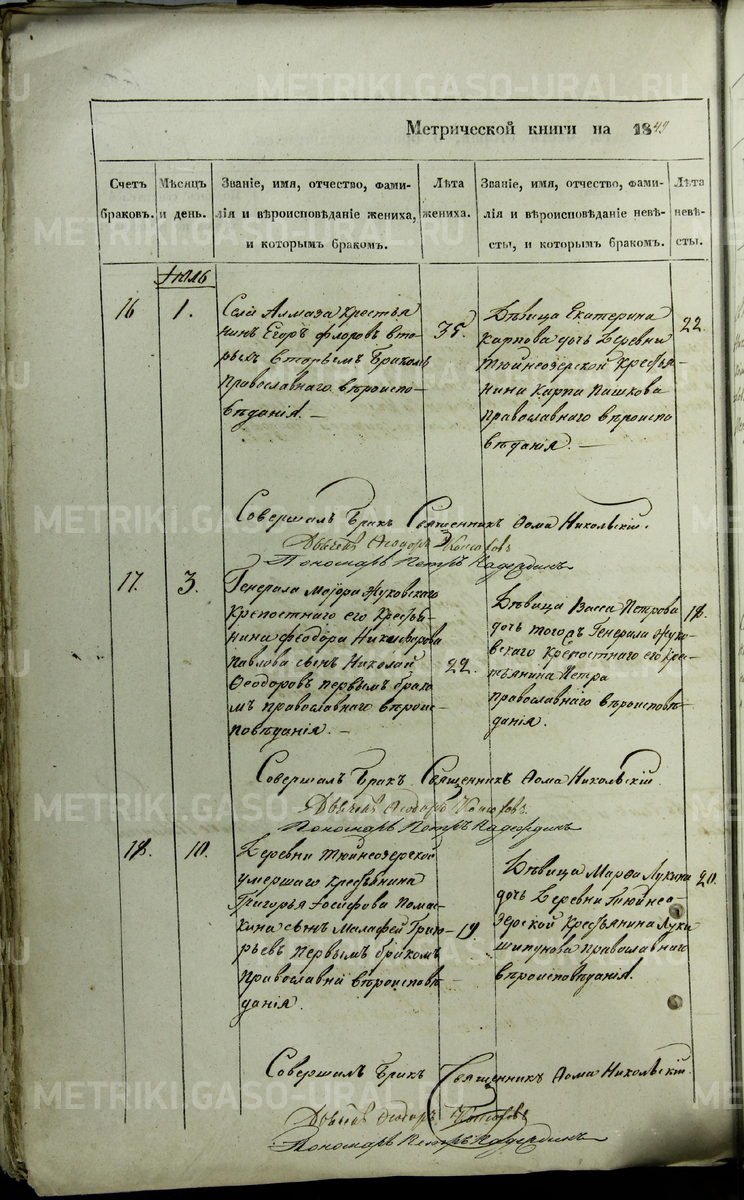 METRIKI.GASO-URAL.RU
Метрической книги на 1849
Счетъ браковъ.
Мѣсяцъ и день.
Званіе, имя, отчество, фами-
лія и вѣроисповѣданіе жениха,
и которымъ бракомъ.
Лѣта жениха.
Званіе, имя, отчество, фами-
лія и вѣроисповѣданіе невѣ-
сты, и которымъ бракомъ.
Лѣта невѣ-
сты.
Іюль
16
1.
Села Алмаза крестья
нинъ Егоръ Флоровъ
вторымъ бракомъ
православнаго вѣроиспо-
вѣданія. —
35.
Дѣвица Екатерина
Карпова дочь деревни
Тюйнеозерской крестья
нина Карпа Пашкова
православнаго вѣроиспо
вѣданія. —
22.
Совершалъ бракъ Священникъ Ѳома Никольскій.
Ѳеодоръ
Пономарь Петръ Кадешдинъ
17.
3.
Генерала Маіора Жуковскаго
крепостнаго его крестья
нина Феодора Никифорова
Павлова сынъ Николай
Ѳеодоровъ первымъ брако
мъ православнаго вѣроис-
повѣданія. —
22.
Дѣвица Васса Петрова
дочь тогожъ Генерала Жуко
вскаго крепостнаго его крес
тьянина Петра
православнаго вѣроисповѣ
данія.
18.
Совершалъ бракъ Священникъ Ѳома Никольскій
Ѳеодоръ
Пономарь Петръ Кадешдинъ
18.
10.
Деревни Тюйнеозерской
умершаго крестьянина
Григорья Іосифова Пома-
кина сынъ Малафей Григо-
рьевъ первымъ бракомъ
православнаго вѣроисповѣ
данія.
19.
Дѣвица Марѳа Лукина
дочь деревни Тюйнео-
зерской крестьянина Луки
Шипунова православнаго
вѣроисповѣданія.
20.
Совершалъ бракъ Священникъ Ѳома Никольскій
Ѳеодоръ
Пономарь Петръ Кадешдинъ